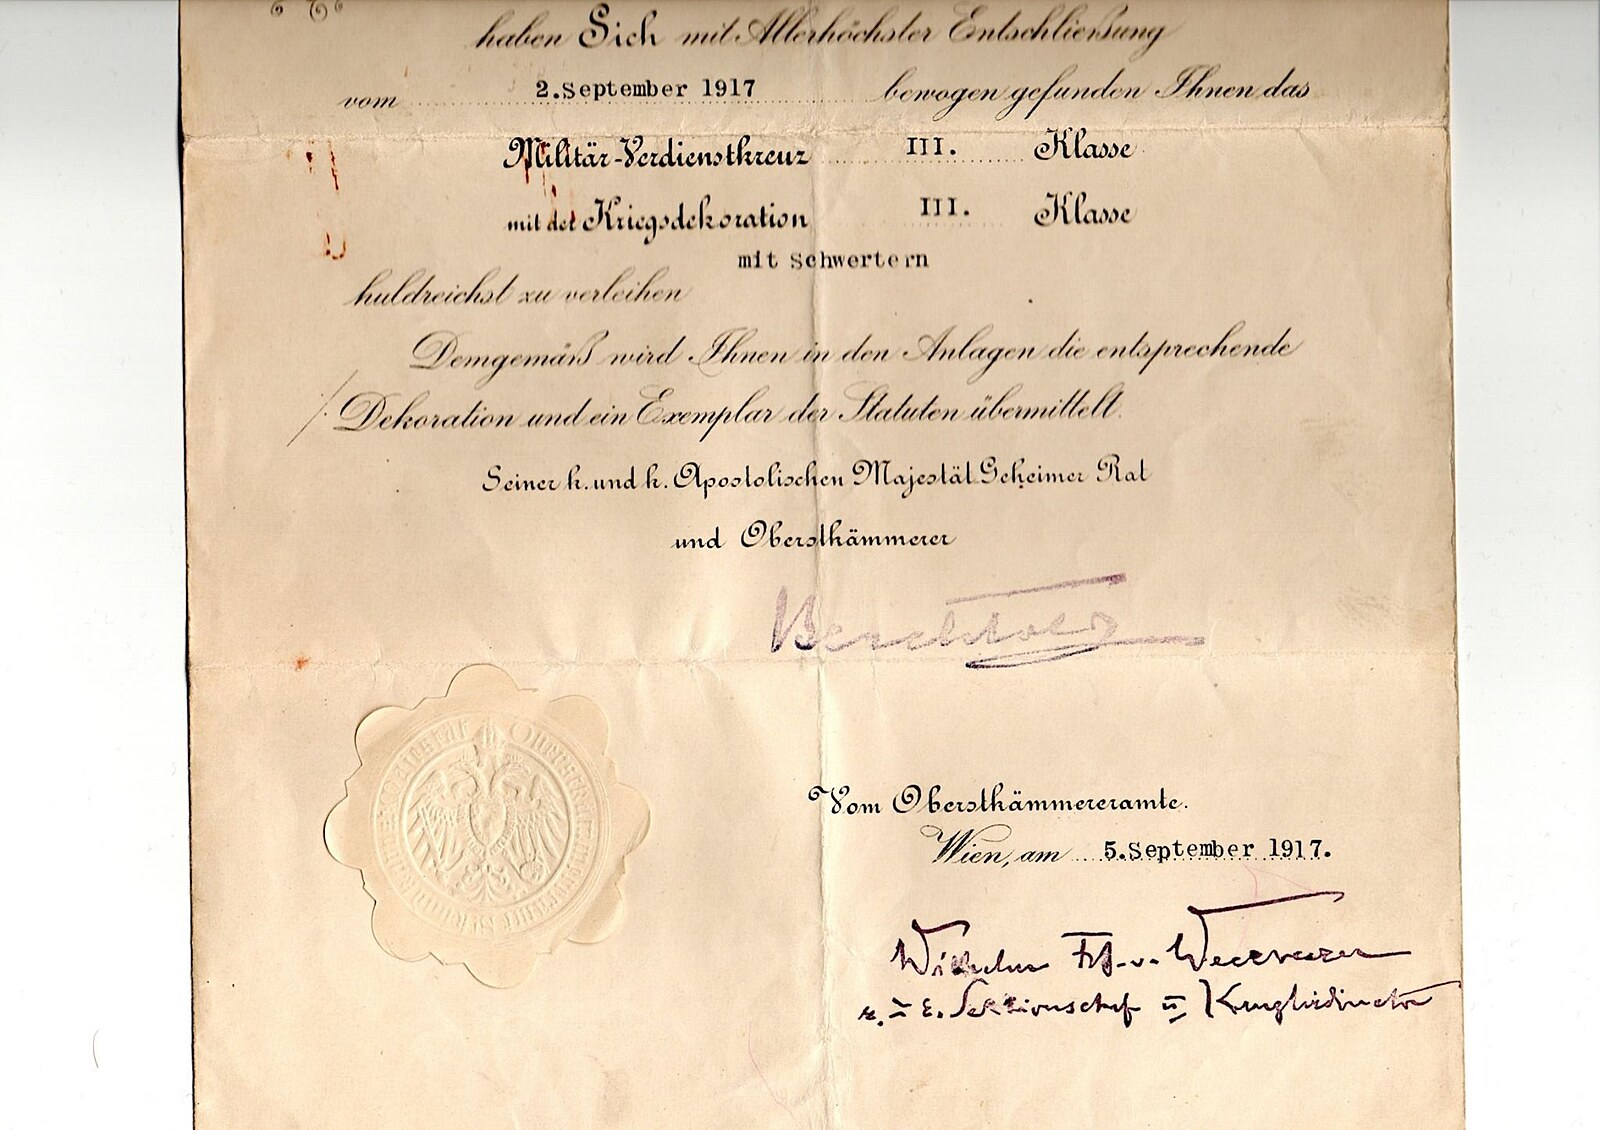 haben Sich mit Allerhöchster Entschließung
vom 2.September 1917 bewogen gefunden Ihnen das
Militär-Verdienstkreuz III. Klasse
mit der Kriegsdekoration III. Klasse
mit Schwertern
huldreichst zu verleihen
Demgemäß wird Ihnen in den Anlagen die entsprechende
/. Dekoration und ein Exemplar der Statuten übermittelt.
Seiner k. und k. Apostolischen Majestät Geheimer Rat
und Oberstkämmerer
Berchtold
Vom Oberstkämmereramte.
Wien, am 5.September 1917.
Wilhelm Frh. v.
Sektionschef u Kanzleidirector